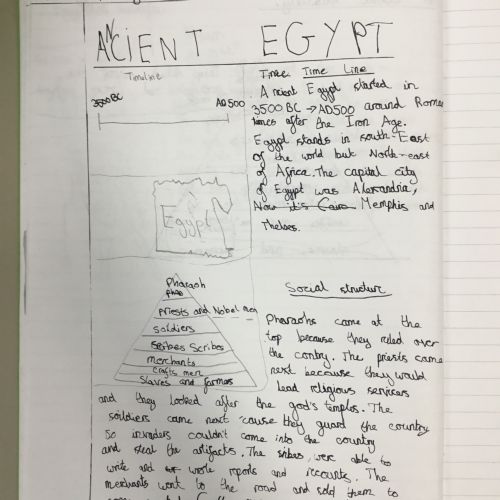 ANCIENT EGYPT
Timeline
3500BC AD500
Time Line
Ancient Egypt started in
3500BC → AD500 around Rome
times after the Iron Age.
Egypt stands in south-East
of the world but North-east
of Africa. The capital city
of Egypt was Alexandria,
Now it's Cairo Memphis and
Thebes.
Egypt
Pharaoh
priests and Nobel men
soldiers
Scribes
merchants
crafts men
Slaves and farmers
Social structure
Pharaohs came at the
top because they ruled over
the contry. The priests came
next because they would
lead religious servicers
and they looked after the god's temples. The
soildiers came next 'cause they guard the country
So invaders couldn't come into the country
and steal the artifacts. The sribes, were able to
write and wrote reports and accounts. The
merchants went to the road and sold them to